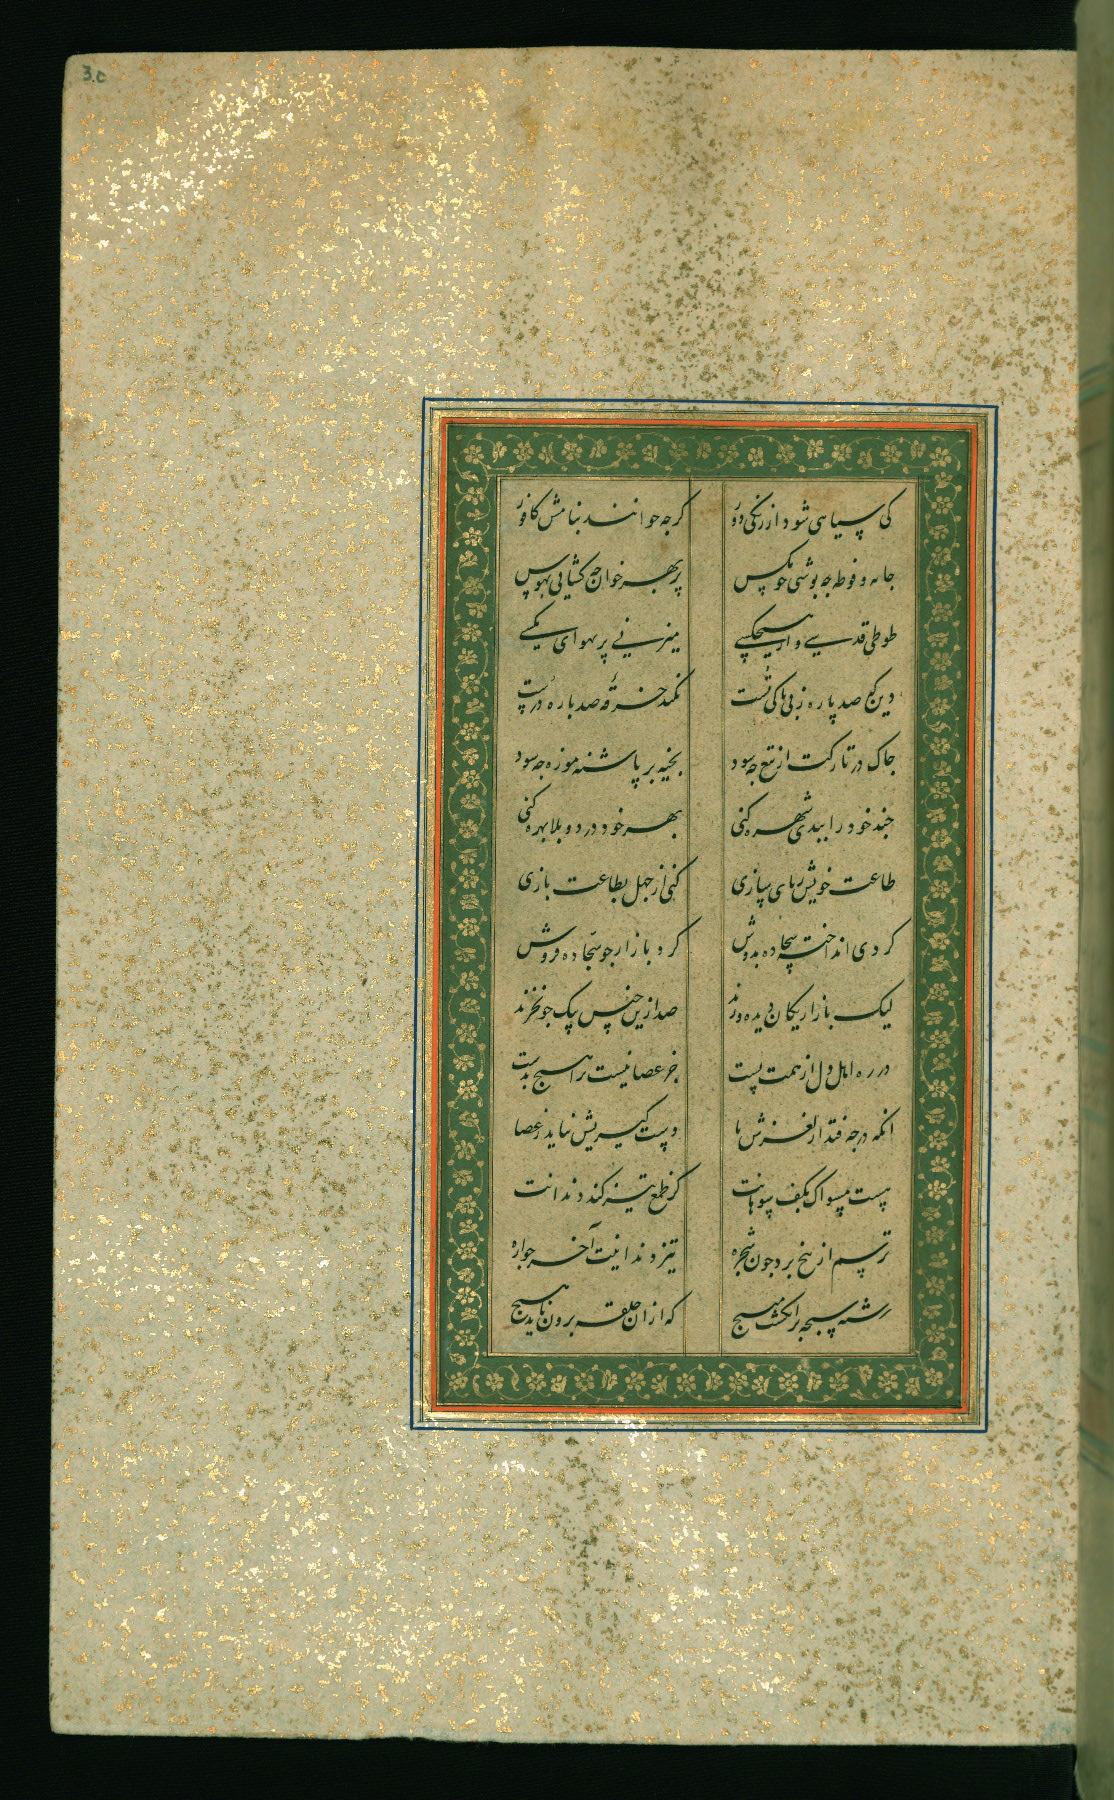 30
کی سیاهی شود از زنکی دور کرجه خوانند بنامش کافور
جامه و فوطه جه پوشی جو مکس پر بهر خوان جه کشایی بهوس
طوطی قدسی و از هیچکسی میزنی پر بهوای مکسی
دین صد پاره ز بی باکی تست نکند خرقه صد باره درست
جاک در تارکت از تیغ جه سود بخیه بر پاشنه موزه جه سود
جند خود را ببدی شهره کنی بهر خود درد و بلا بهره کنی
طاعت خویش سازی کنی از جهل بطاعت بازی
کردی انداخته سجاده بدوش کرد بازار جو سجاده فروش
لیک بازاریکان دیده ورند صد ازین جنس بیک جو نخرند
در ره اهل دل از همت پست جز عصا نیست ترا هیچ بدست
انکه در جه فتد از لغزش پا دست کیریش نیاید ز عصا
هست مسواک بکف سوهانت کز طمع تیز کند دندانت
ترسم از بیخ برد جون شجره تیز دندانیت آخر جو اره
رشته سبحه بر انکشت مپیج که ازان حلقه برون ناید هیج